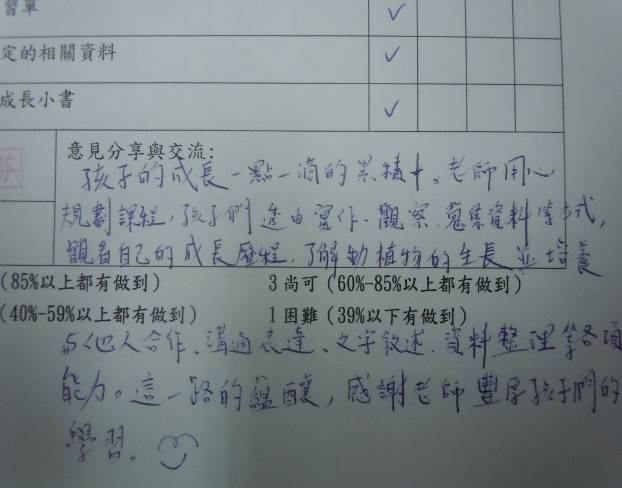 習單 ✓
定的相關資料 ✓
成長小書 ✓
意見分享與交流:
孩子的成長一點一滴的累積中。老師用心
規劃課程,孩子們透由實作、觀察、蒐集資料等方式,
觀看自己的成長歷程,了解動植物的生長並培養
(85%以上都有做到) 3 尚可(60%-85%以上都有做到)
(40%-59%以上都有做到) 1 困難(39%以下有做到)
與他人合作、溝通表達、文字敘述、資料整理等各項
能力。這一路的醞釀,感謝老師豐厚孩子們的
學習。